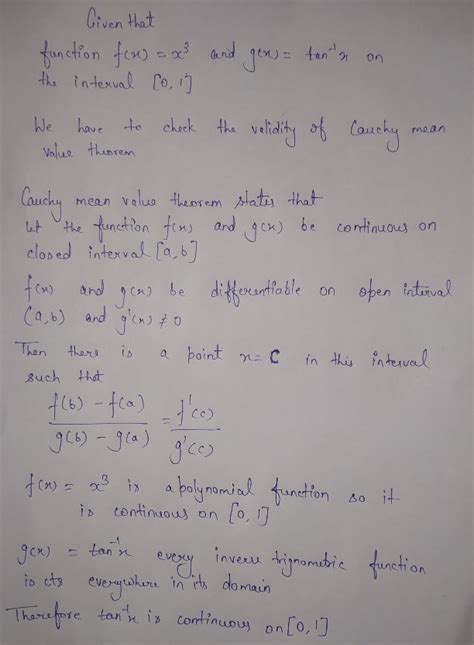 Given that
function f(x) = x³ and g(x) = tan⁻¹x on
the interval [0, 1]
We have to check the validity of Cauchy mean
value theorem
Cauchy mean value theorem states that
let the function f(x) and g(x) be continuous on
closed interval [a,b]
f(x) and g(x) be differentiable on open interval
(a,b) and g'(x) ≠ 0
Then there is a point x = c in this interval
such that
f(b) - f(a) / g(b) - g(a) = f'(c) / g'(c)
f(x) = x³ is a polynomial function so it
is continuous on [0, 1]
g(x) = tan⁻¹x every inverse trignometric function
is cts everywhere in its domain
Therefore tan⁻¹x is continuous on [0, 1]